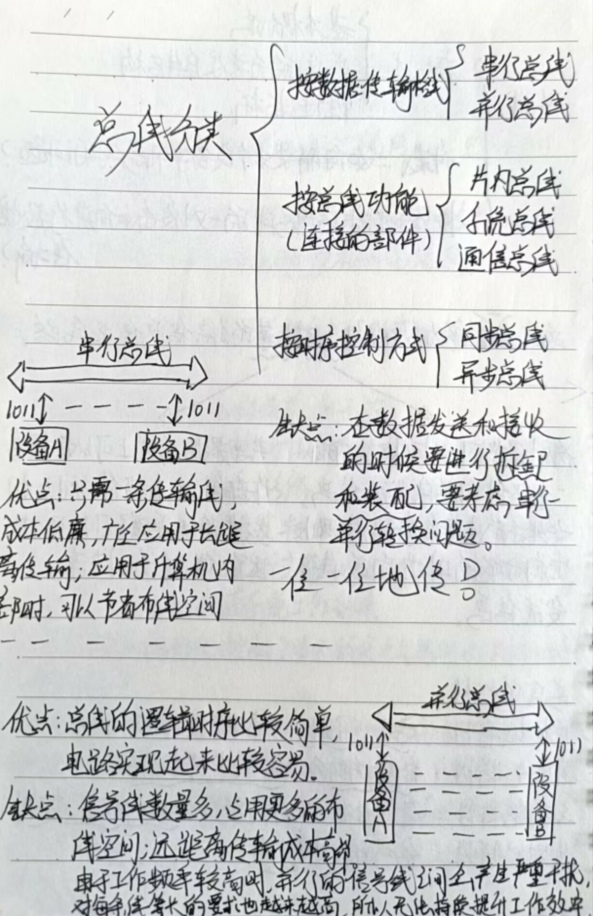 总线分类
按数据传输格式
串行总线
并行总线
按总线功能
(连接的部件)
片内总线
系统总线
通信总线
按时序控制方式
同步总线
异步总线
串行总线
1011
1011
设备A
设备B
优点:只需一条传输线,
成本低廉,广泛应用于长距
离传输;应用于计算机内
部时,可以节省布线空间
缺点:在数据发送和接收
的时候要进行拆卸
和装配,要考虑串行-
并行转换问题。
一位一位地传。
优点:总线的逻辑时序比较简单,
电路实现起来比较容易。
缺点:信号线数量多,占用更多的布
线空间;远距离传输成本高昂
由于工作频率较高时,并行的信号线之间会产生严重干扰,
对每条线等长的要求也越来越高,所以无法持续提升工作效率
并行总线
1011
1011
设备A
设备B